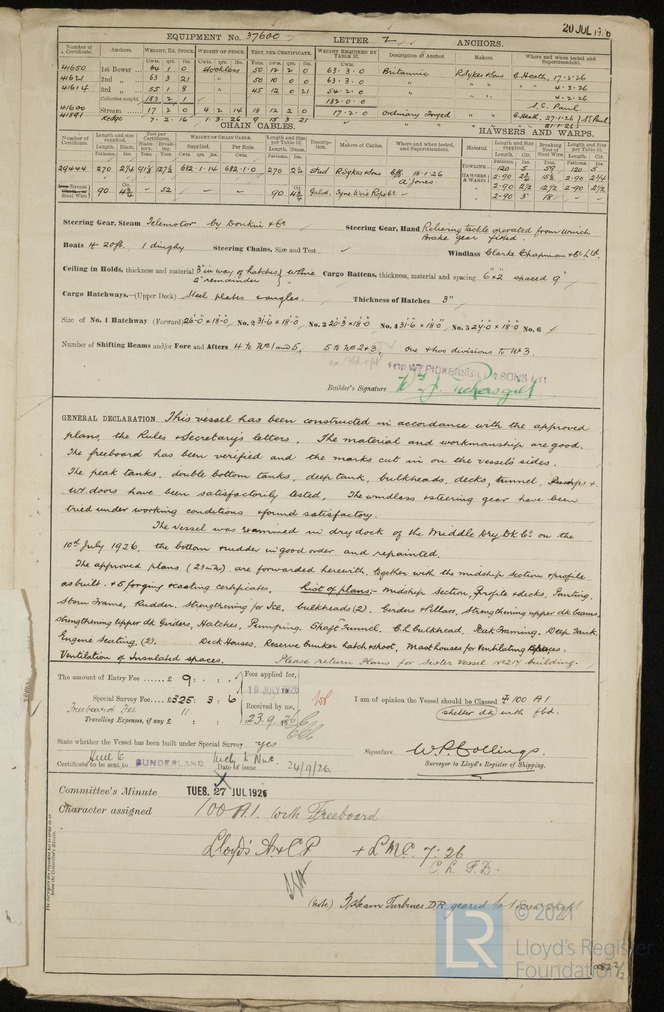 20 JUL 1926
EQUIPMENT No. 37600 LETTER Z ANCHORS.
Number of Certificate. Anchors. WEIGHT, EX. STOCK. WEIGHT OF STOCK. TEST, PER CERTIFICATE. WEIGHT REQUIRED BY TABLE 31. Description of Anchor. Makers. Where and when tested and Superintendent.
41650 1st Bower 64 1 0 Stockless 50 12 2 0 63.3.0 Britannic R Sykes & Sons C. Heath, 17.2.26
41621 2nd " 63 3 21 " 50 10 0 0 63.3.0 " " " 4.2.26
41614 3rd " 55 1 8 " 45 12 0 21 54.2.0 " " " 4.2.26
Collective weight. 183 2 1 182.0.0 S.E. Paul
41600 Stream 17 2 0 4 2 14 18 12 2 0 17.2.0 Ordinary Forged " " C. Heath, 27.1.26 S. Paul
41591 Kedge 7 2 16 1 3 26 9 15 3 21 " " 21.1.26
CHAIN CABLES. HAWSERS AND WARPS.
Number of Certificate. Length and size supplied. Test per Certificate. WEIGHT OF CHAIN CABLE. Length and Size per Table 31. Description. Makers of Cables. Where and when tested, and Superintendent. Material Length and Size supplied. Breaking Test of Steel Wire. Length and Size per Table 31.
29444 270 2 1/4 91 1/8 127 1/2 682.1.14 682.1.0 270 2 1/4 Stud R Sykes & Son 18.1.26 A Jones
Stream 90 4 3/4 - 52 90 4 3/4 Galvd. Tyne Wire Rope Co
TOWLINE 120 5 59 120 5
HAWSERS & WARPS 2-90 2 3/4 15 1/2 2-90 2 3/4
2-90 2 1/2 12 1/2 2-90 2 1/2
2-90 3 18 - -
Steering Gear, Steam Telemotor by Donkin & Co Steering Gear, Hand Relieving tackle operated from winch
Brake gear fitted.
Boats 4 20ft. 1 dinghy Steering Chains, Size and Test Windlass Clarke Chapman & Co Ltd.
Ceiling in Holds, thickness and material 3" in way of hatches where Cargo Battens, thickness, material and spacing 6"x2" spaced 9"
2" remainder
Cargo Hatchways.—(Upper Deck) Steel plates & angles. Thickness of Hatches 3"
Size of No. 1 Hatchway (Forward) 26'-0 x 18'-0 No. 2 31'-6 x 18'-0 No. 3 20'-3 x 18'-0 No. 4 31'-6 x 18'-0 No. 5 24'-0 x 18'-0 No. 6
Number of Shifting Beams and/or Fore and Afters 4 to No 1 and 5, 5 to No 2 & 3, one & two divisions to No 3.
Builder's Signature Wm J. Pickersgill
GENERAL DECLARATION. This vessel has been constructed in accordance with the approved
plans, the Rules & Secretary's letters. The material and workmanship are good.
The freeboard has been verified and the marks cut in on the vessel's sides.
The peak tanks, double bottom tanks, deep tank, bulkheads, decks, tunnel, &
WT doors have been satisfactorily tested. The windlass & steering gear have been
tried under working conditions & found satisfactory.
The vessel was examined in dry dock of the Middle Dry Dk Co. on the
10th July 1926, the bottom & rudder in good order and repainted.
The approved plans (21 in No) are forwarded herewith, together with the midship section & profile
as built. & 5 forging & casting certificates. List of plans:- Midship section, Profile & decks, Panting,
Stern Frame, Rudder. Strengthening for Ice, bulkheads (2). Girders & Pillars, Strengthening upper dk beams,
strengthening upper dk Girders, Hatches, Pumping. Shaft Tunnel. C.L Bulkhead, Peak Framing. Deep Tank,
Engine Seating. (2). Deck Houses, Reserve bunker hatch & shoot, Mast houses for Ventilating
Ventilation of Insulated spaces. Please return Plans for Sister Vessel No 214 building.
The amount of Entry Fee £ 9 : : Fees applied for,
19 JULY 1926
Special Survey Fee £ 325 : 3 : 6 Received by me,
Freeboard Fee 11
Travelling Expenses, if any £ 23.9.26
I am of opinion the Vessel should be Classed + 100 A1
shelter dk with fbd.
State whether the Vessel has been built under Special Survey yes
Certificate to be sent to SUNDERLAND Date of issue 24/9/26
Signature W. P. Collings.
Surveyor to Lloyd's Register of Shipping.
Committee's Minute TUES. 27 JUL 1926
Character assigned 100 A.1. with Freeboard
Lloyd's A & C P + L.M.C. 7.26
C.L. F.D.
(note) 3 Steam Turbines D.R. geared to 1 screw shaft
LR © 2021
Lloyd's Register
Foundation